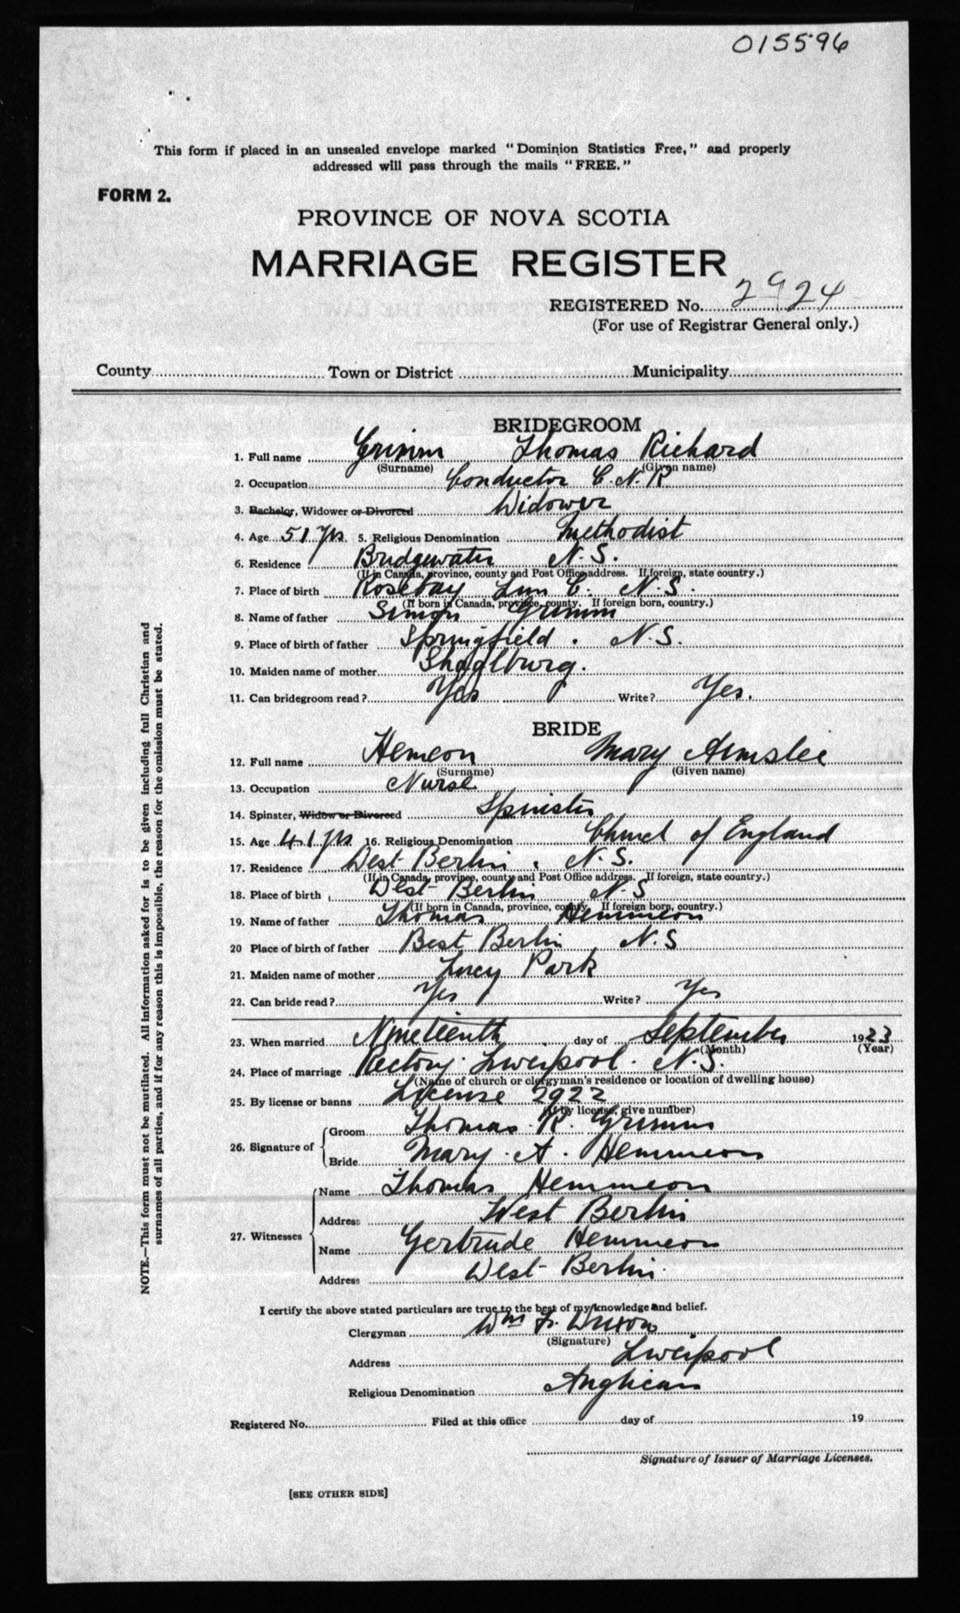 015596
This form if placed in an unsealed envelope marked "Dominion Statistics Free," and properly
addressed will pass through the mails "FREE."
FORM 2.
PROVINCE OF NOVA SCOTIA
MARRIAGE REGISTER
REGISTERED No. 2924
(For use of Registrar General only.)
County Town or District Municipality
BRIDEGROOM
1. Full name Grimm Thomas Richard
(Surname) (Given name)
2. Occupation Conductor C.N.R
3. Bachelor, Widower or Divorced Widower
4. Age 51 yrs 5. Religious Denomination Methodist
6. Residence Bridgewater N.S.
(If in Canada, province, county and Post Office address. If foreign, state country.)
7. Place of birth Rosebay Lun C. N.S.
(If born in Canada, province, county. If foreign born, country.)
8. Name of father Simon Grimm
9. Place of birth of father Springfield. N.S.
10. Maiden name of mother
11. Can bridegroom read? Yes Write? Yes.
BRIDE
12. Full name Hemeon Mary Ainslie
(Surname) (Given name)
13. Occupation Nurse
14. Spinster, Widow or Divorced Spinster
15. Age 41 yrs 16. Religious Denomination Church of England
17. Residence West Berlin. N.S.
(If in Canada, province, county and Post Office address. If foreign, state country.)
18. Place of birth West Berlin N.S
(If born in Canada, province, county. If foreign born, country.)
19. Name of father Thomas Hemmeon
20 Place of birth of father Best Berlin, N.S
21. Maiden name of mother Lucy Park
22. Can bride read? Yes Write? Yes
23. When married Nineteenth day of September 1923
(Month) (Year)
24. Place of marriage Rectory Liverpool. N.S.
(Name of church or clergyman's residence or location of dwelling house)
25. By license or banns License 2922
(If by license, give number)
26. Signature of Groom Thomas R. Grimm
Bride Mary A. Hemmeon
27. Witnesses Name Thomas Hemmeon
Address West Berlin
Name Gertrude Hemmeon
Address West Berlin.
I certify the above stated particulars are true to the best of my knowledge and belief.
Clergyman Wm F.
(Signature)
Address Liverpool
Religious Denomination Anglican
Registered No. Filed at this office day of 19
Signature of Issuer of Marriage Licenses.
[SEE OTHER SIDE]
NOTE.—This form must not be mutilated. All information asked for is to be given including full Christian and
surnames of all parties, and if for any reason this is impossible, the reason for the omission must be stated.